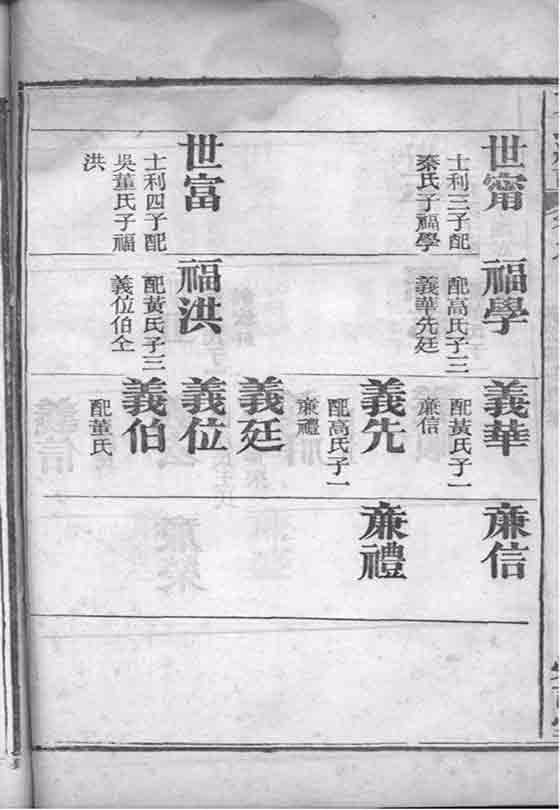 世甯
士利三子配
秦氏子福學
世富
士利四子配
吳董氏子福
洪
福學
配高氏子三
義華先廷
福洪
配黃氏子三
義位伯仝
義華
配黃氏子一
亷信
義先
配高氏子一
亷禮
義廷
義位
義伯
配董氏
亷信
亷禮